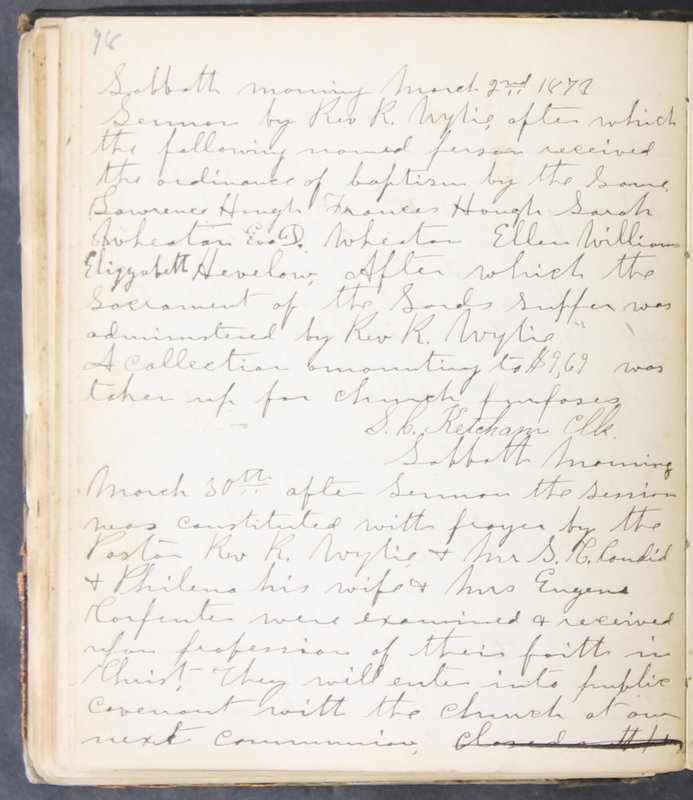 98
Sabbath morning March 2nd 1873
Sermon by Rev R. Wylie, after which
the following named person received
the ordinance of baptism by the same
Lawrence Hough Frances Hough Sarah
Wheaton Eva D. Wheaton Ellen Williams
Elizzabeth Hevelow, After which the
Sacrament of the Lords Supper was
administered by Rev R. Wylie
A collection amounting to $9,69 was
taken up for church purposes
S. C. Ketcham Clk.
Sabbath Morning
March 30th after Sermon the session
was constituted with prayer by the
Pastor Rev R. Wylie, & Mr S. H.
& Philena his wife & Mrs Eugene
Carpenter were examined & received
upon profession of their faith in
Christ, They will enter into public
covenant with the church at our
next communion, closed with